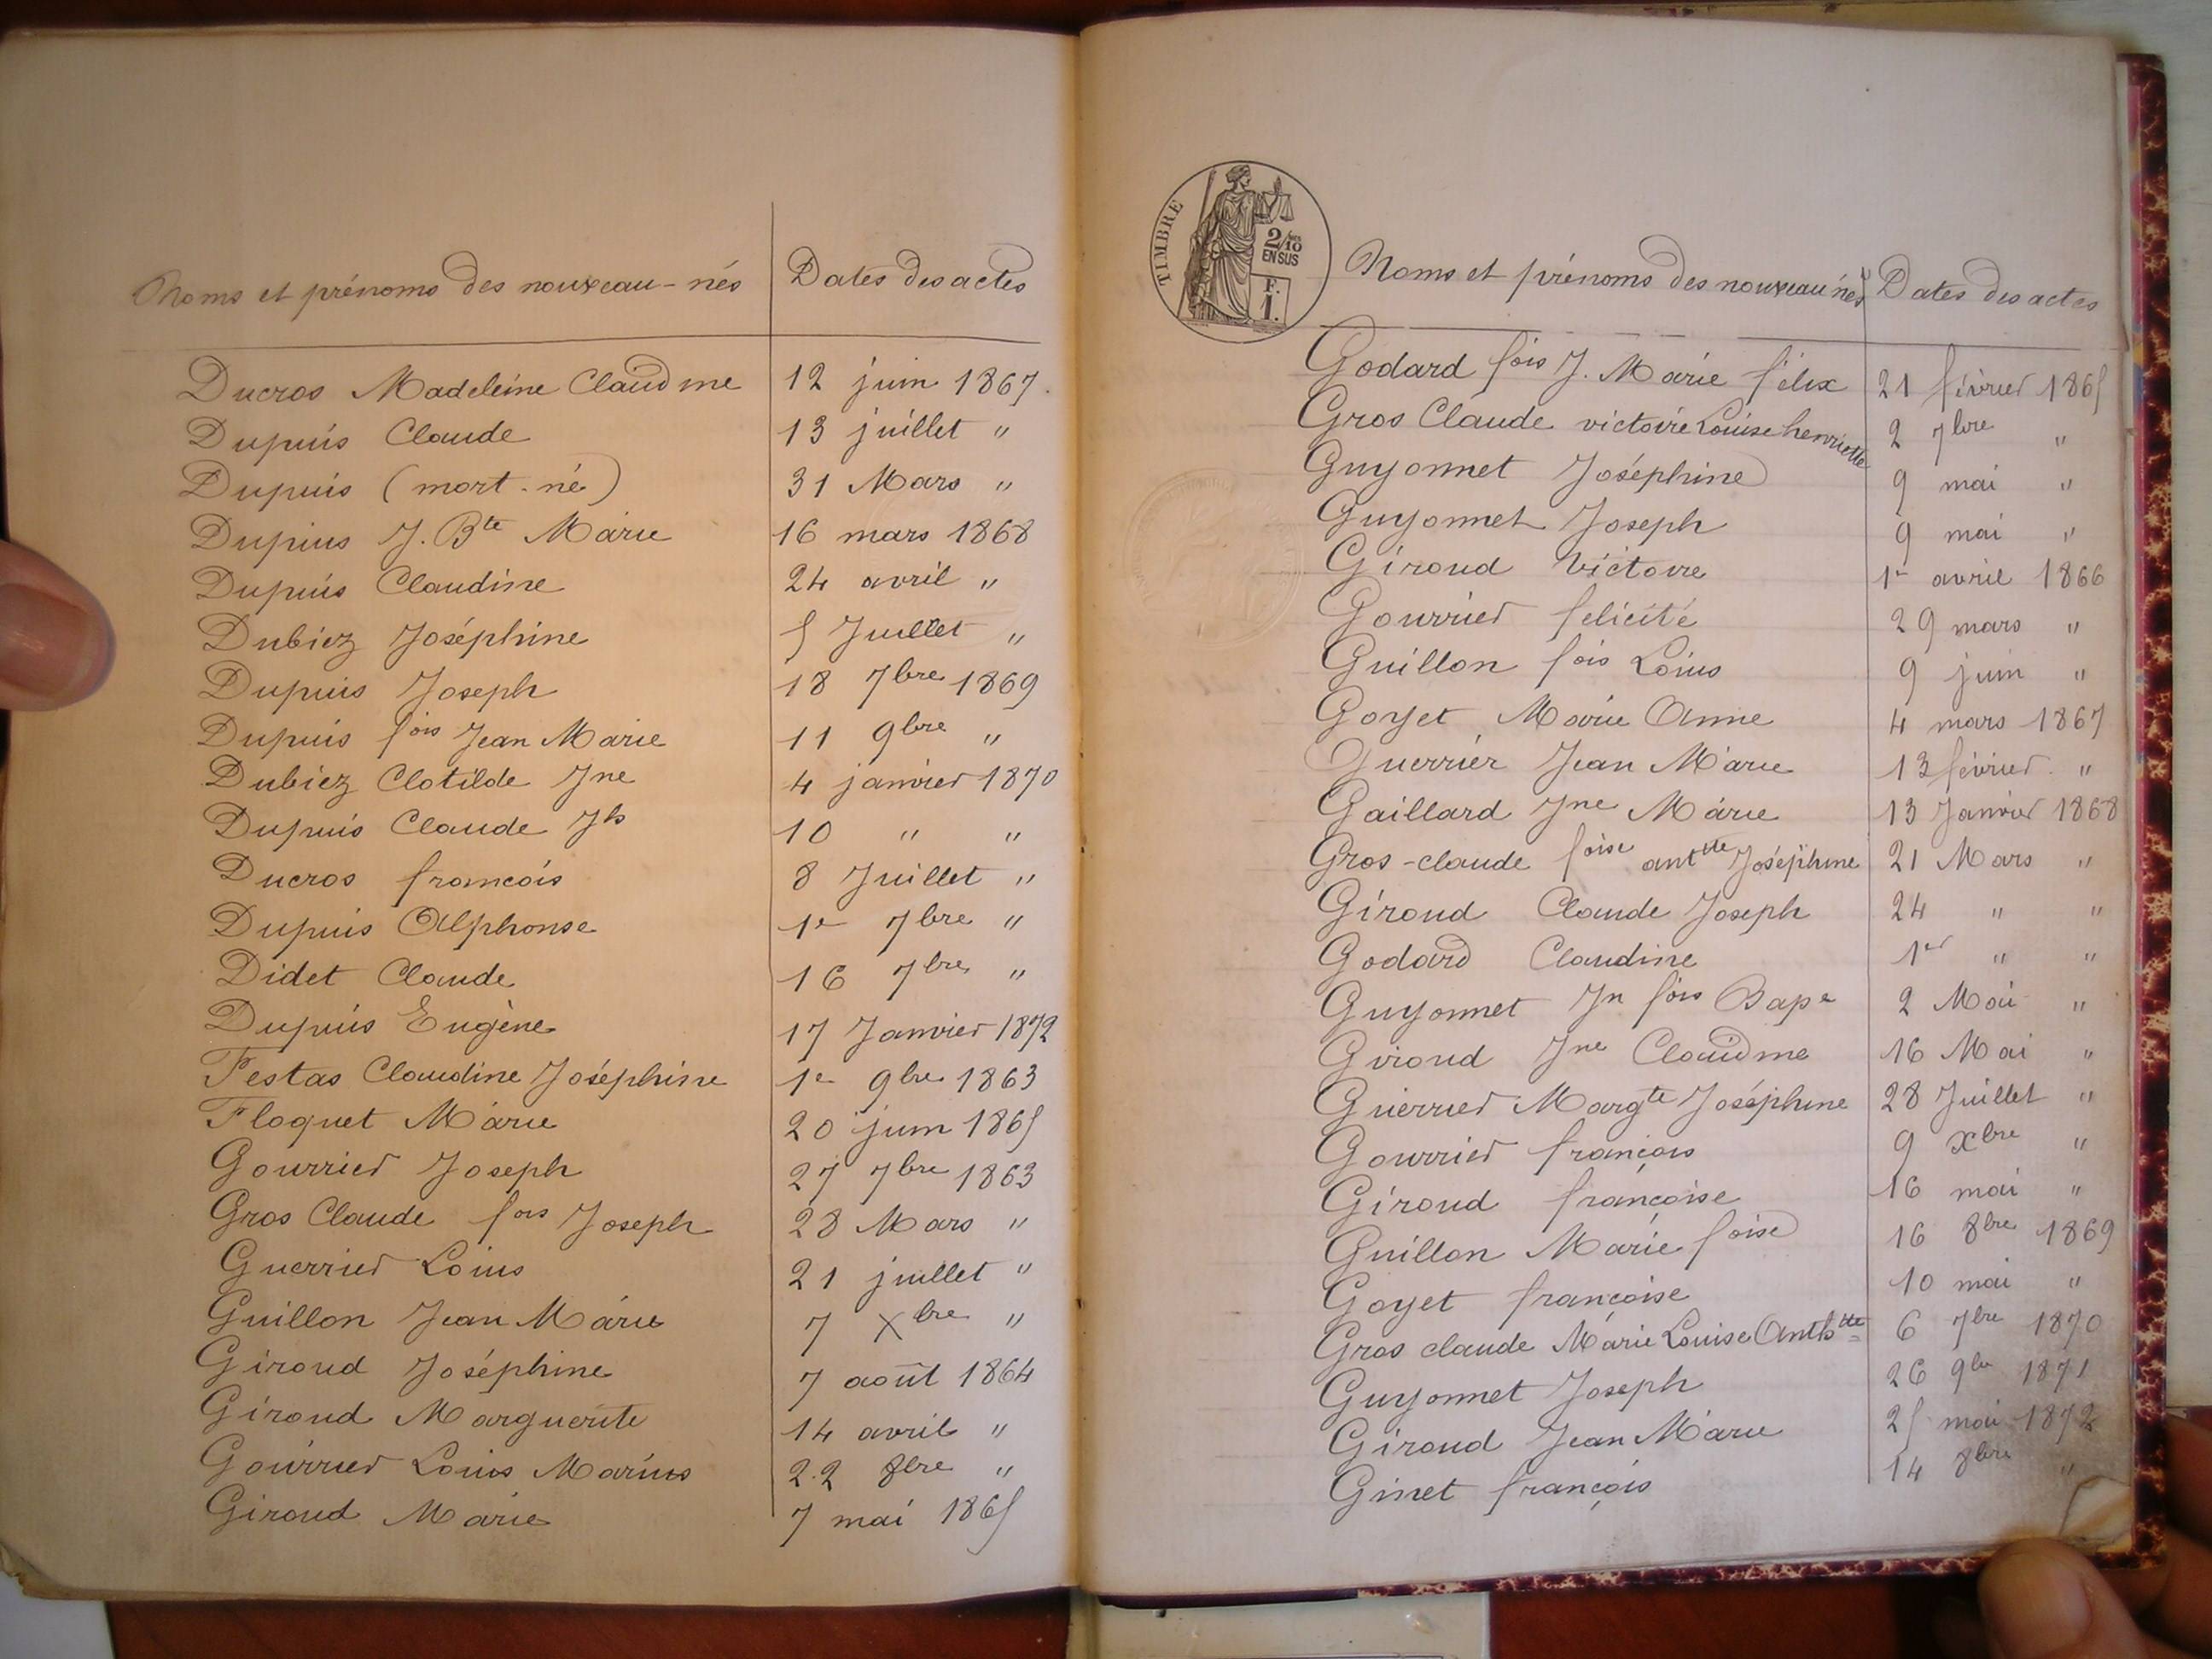 Noms et prénoms des nouveau-nés Dates des actes
Ducros Madeleine Claudine 12 juin 1867.
Dupuis Claude 13 juillet "
Dupuis (mort-né) 31 Mars "
Dupuis J. Bte Marie 16 mars 1868
Dupuis Claudine 24 avril "
Dubiez Joséphine 5 Juillet "
Dupuis Joseph 18 7bre 1869
Dupuis fois Jean Marie 11 9bre "
Dubiez Clotilde Jne 4 janvier 1870
Dupuis Claude Jh 10 " "
Ducros francois 8 Juillet "
Dupuis Alphonse 1er 7bre "
Didet Claude 16 7bre "
Dupuis Eugène 17 Janvier 1872
Festas Claudine Joséphine 1er 9bre 1863
Floquet Marie 20 juin 1865
Gourrier Joseph 27 7bre 1863
Gros Claude fois Joseph 28 Mars "
Guerrier Louis 21 juillet "
Guillon Jean Marie 7 Xbre "
Giroud Joséphine 7 août 1864
Giroud Marguerite 14 avril "
Gourrier Louis Marius 22 8bre "
Giroud Marie 7 mai 1865
TIMBRE
2/10es
EN SUS
F.
1.
Noms et prénoms des nouveau nés Dates des actes
Godard fois J. Marie félix 21 février 1865
Gros Claude victoire Louise henriette 2 7bre "
Guyonnet Joséphine 9 mai "
Guyonnet Joseph 9 mai "
Giroud Victoire 1er avril 1866
Gourrier felicité 29 mars "
Guillon fois Louis 9 juin "
Goyet Marie Anne 4 mars 1867
Guerrier Jean Marie 13 février "
Gaillard Jne Marie 13 Janvier 1868
Gros-claude foise anttte Joséphine 21 Mars "
Giroud Claude Joseph 24 " "
Godard Claudine 1er " "
Guyonnet Jn fois Bape 2 Mai "
Giroud Jne Claudine 16 Mai "
Guerrier Margte Joséphine 28 Juillet "
Gourrier françois 9 xbre "
Giroud françoise 16 mai "
Guillon Marie foise 16 8bre 1869
Goyet francoise 10 mai "
Gros claude Marie Louise Anthtte 6 7bre 1870
Guyonnet Joseph 26 9bre 1871
Giroud Jean Marie 25 mai 1872
Ginet françois 14 8bre "